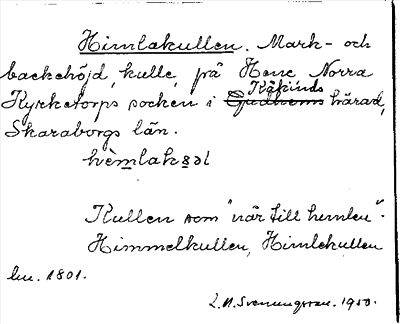 Himlakullen. Mark- och
backehöjd, kulle, på Hene Norra
Kyrketorps socken i Gudhems Kåkinds härad,
Skaraborgs län.
Kullen som "når till himlen".
Himmelkullen, Himlekullen
1801.
Svenungsson. 1950.